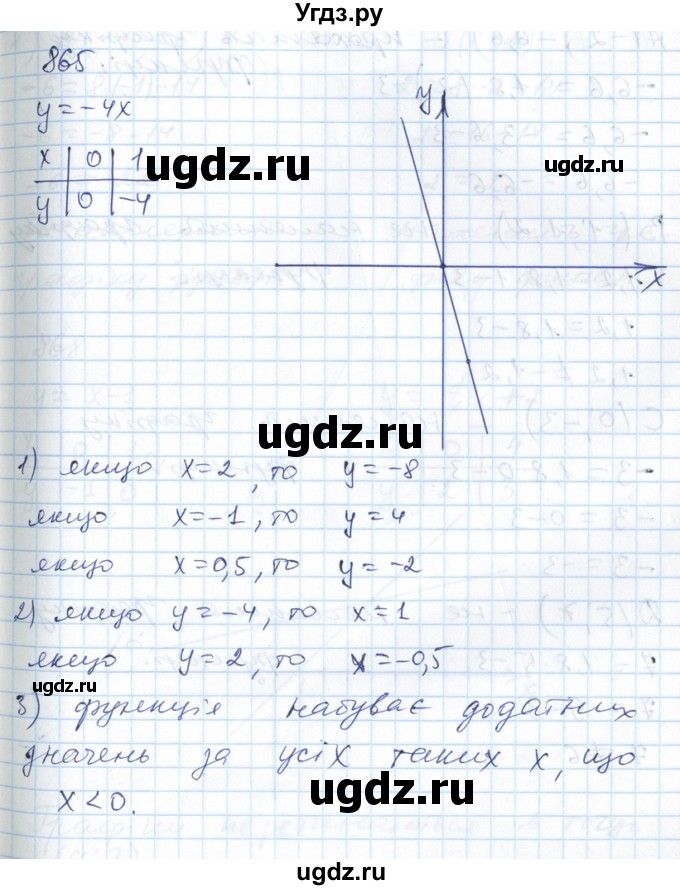 Угдз.ру
865.
y = -4x
x | 0 | 1
y | 0 | -4
y
x
ugdz.ru
ugdz.ru
ugdz.ru
ugdz.ru
1) якщо x=2, то y=-8
якщо x=-1, то y=4
якщо x=0,5, то y=-2
2) якщо y=-4, то x=1
якщо y=2, то x=-0,5
ugdz.ru
ugdz.ru
3) функція набуває додатних
значень за усіх таких x, що
x<0.
ugdz.ru
ugdz.ru